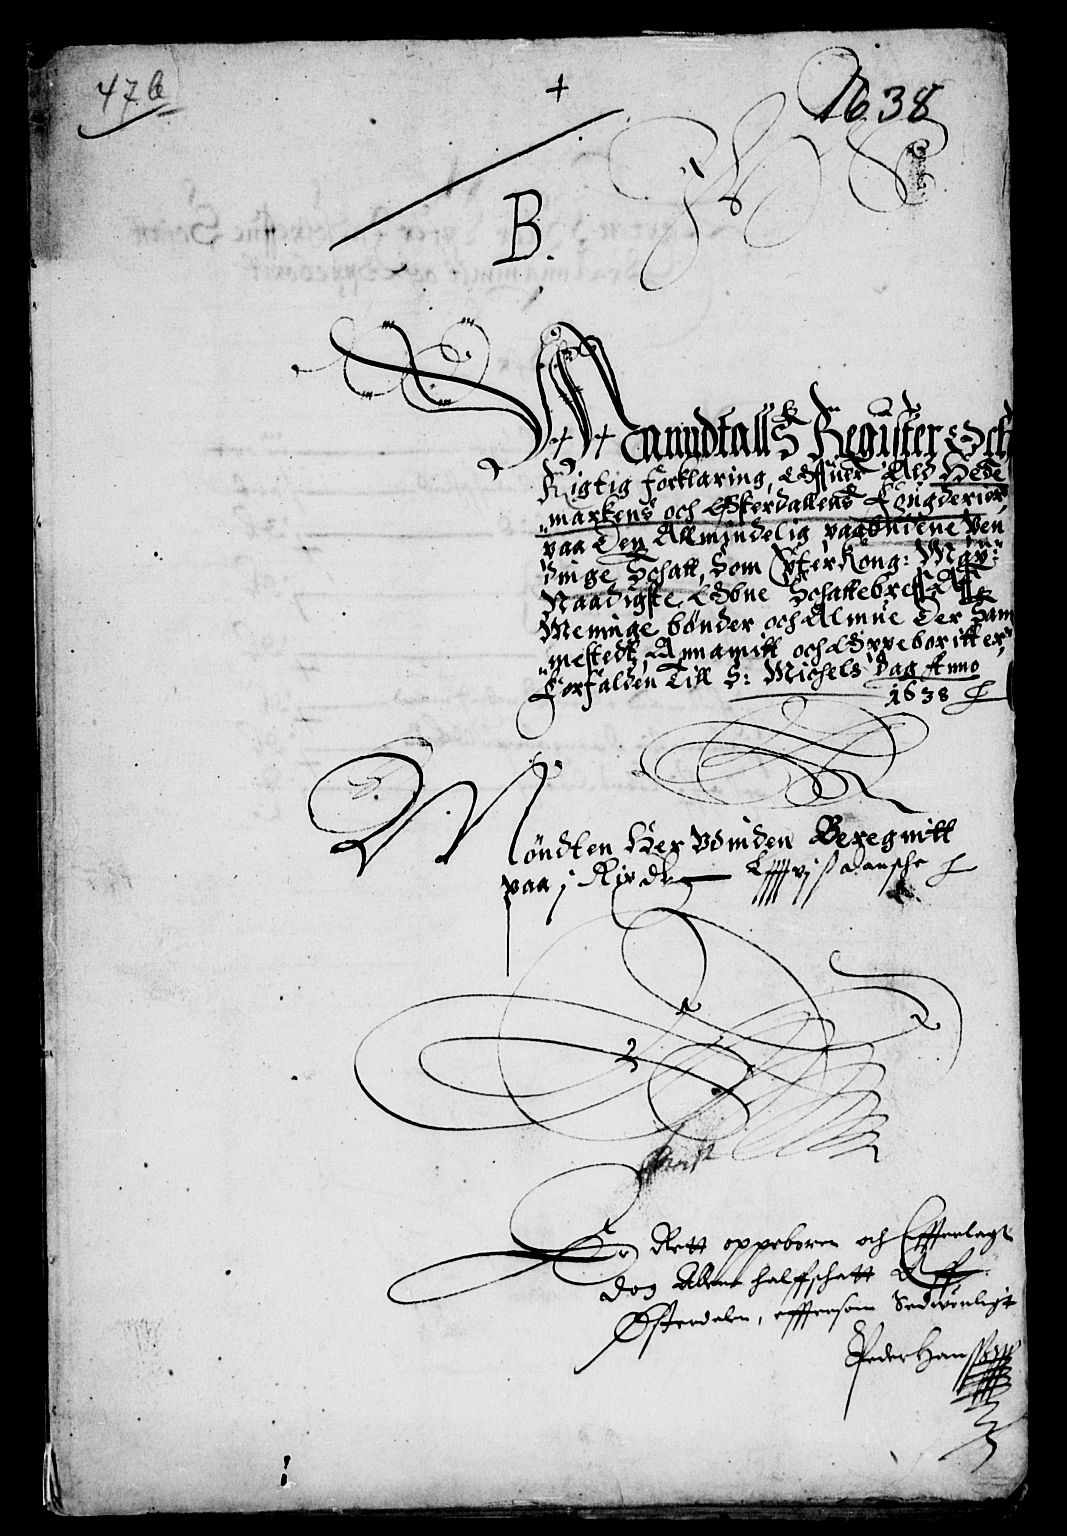 47 b
1638
B.
Manndtallsz Register Och
Rigtig forklaring, Offuer Alt Hede
markens och Østerdallens Fougderier,
paa Den Allmindelig paabudene Pen
dinge Schatt, Som Epter Kong: May:
Naadigste Obne Schattebreff Aff
Meninge bønder och Almue Der Sam
mestedtz Annamitt och Oppeboritt er,
Forfalden Till S: Michels Dag Anno
1638
Møndten Her Vdinden Beregnitt
paa j Rixdr vj ß danske
Er Rett oppeboren och Effterlagt
dog Alene halffschatt Aff
Østerdalen, effttersom Sedwonligt
Peder Hanssen